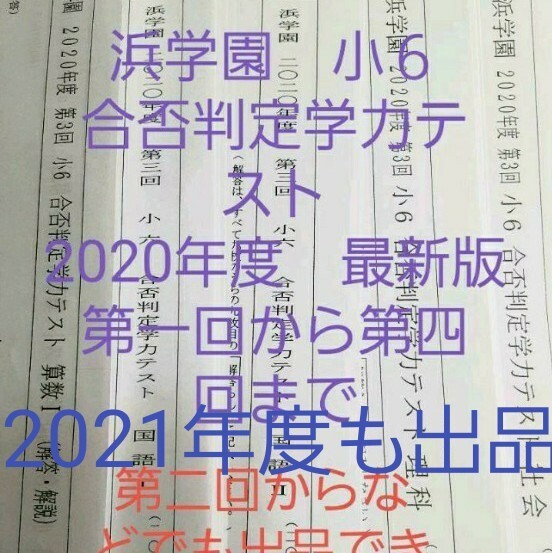 浜学園 小6
合否判定学力テ
スト
2020年度 最新版
第一回から第四
回まで
2021年度も出品
第二回からな
どでも出品でき
浜学園 2020年度 第3回 小6 合否判定学力テスト 社会
浜学園 2020年度 第3回 小6 合否判定学力テスト 理科
浜学園 二〇二〇年度 第三回 小六 合否判定学力テスト 国語Ⅱ
浜学園 二〇二〇年度 第三回 小六 合否判定学力テスト 国語
学園 2020年度 第3回 小6 合否判定学力テスト 算数Ⅰ (解答・解説)